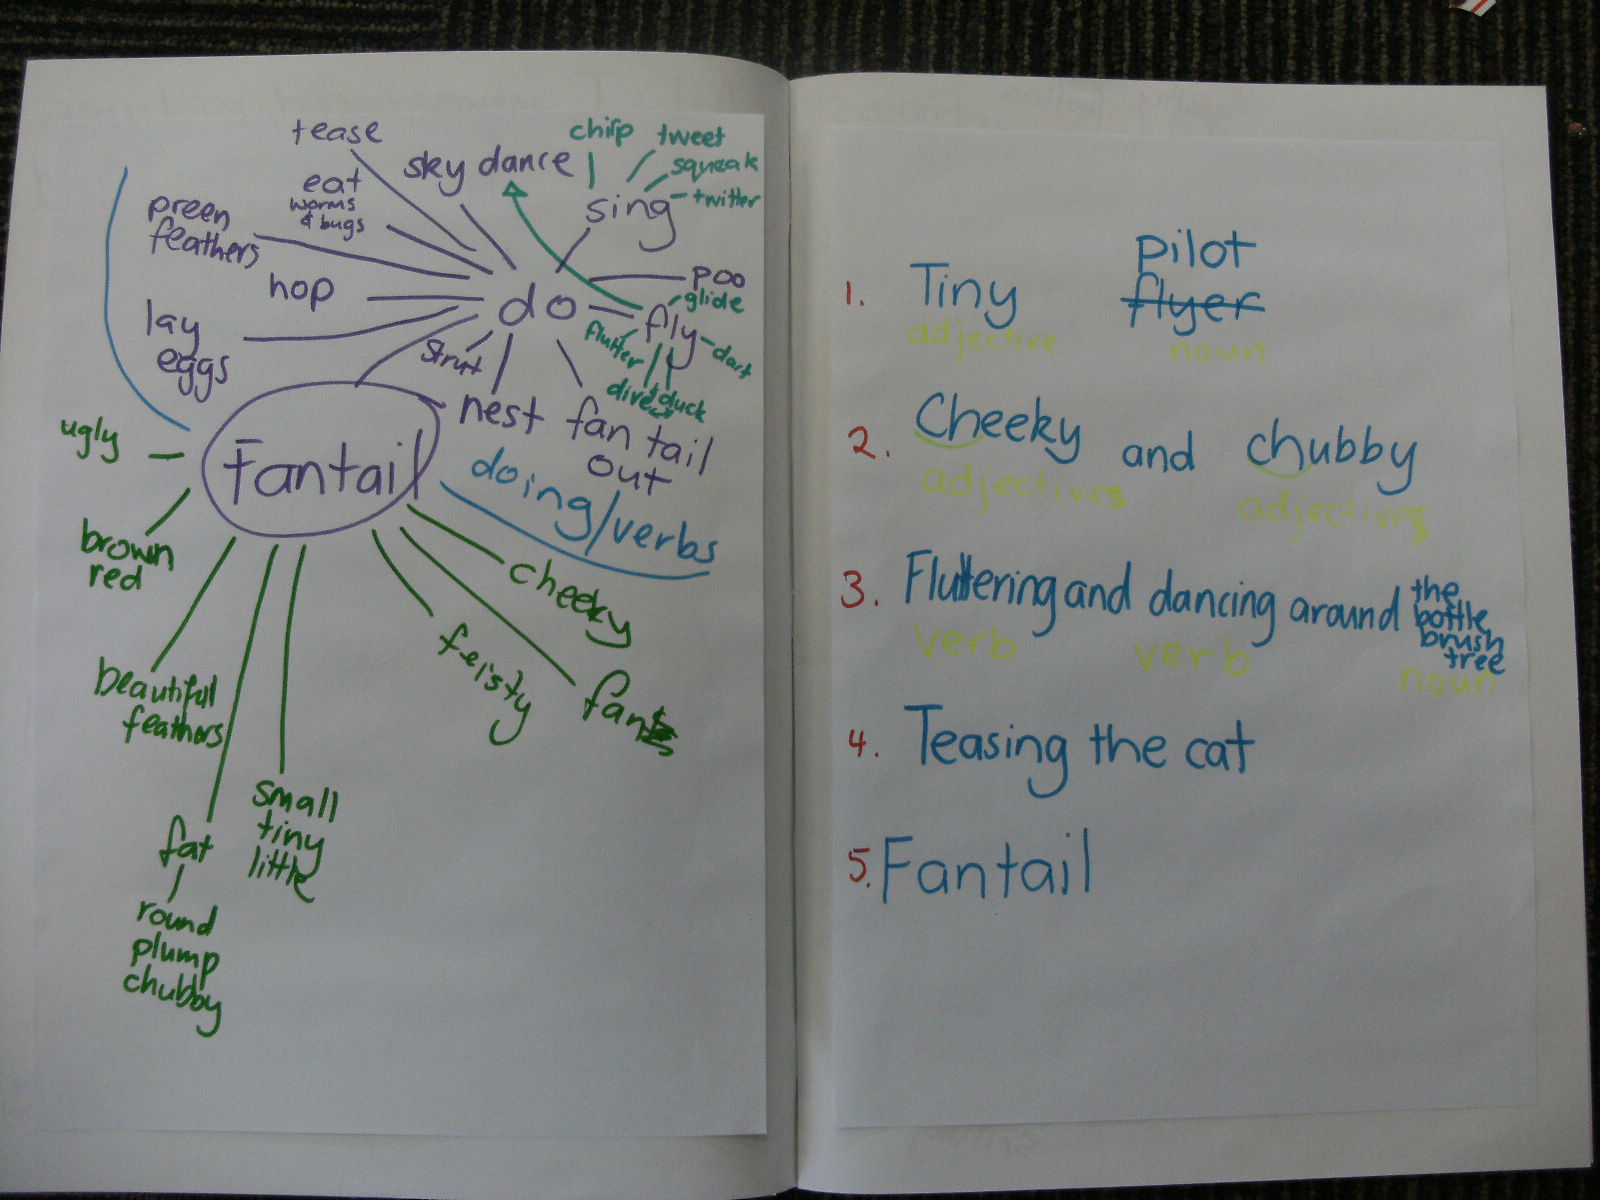 tease
sky dance
chirp
tweet
squeak
twitter
sing
eat
worms
& bugs
preen
feathers
hop
do
poo
glide
fly
flutter
dart
dive
duck
lay
eggs
strut
nest
fan tail
out
Fantail
doing/verbs
ugly
brown
red
beautiful
feathers
fat
round
plump
chubby
small
tiny
little
feisty
cheeky
fan
1. Tiny pilot
flyer
adjective noun
2. Cheeky and chubby
adjectives adjectives
3. Fluttering and dancing around the
bottle
brush
tree
verb verb noun
4. Teasing the cat
5. Fantail